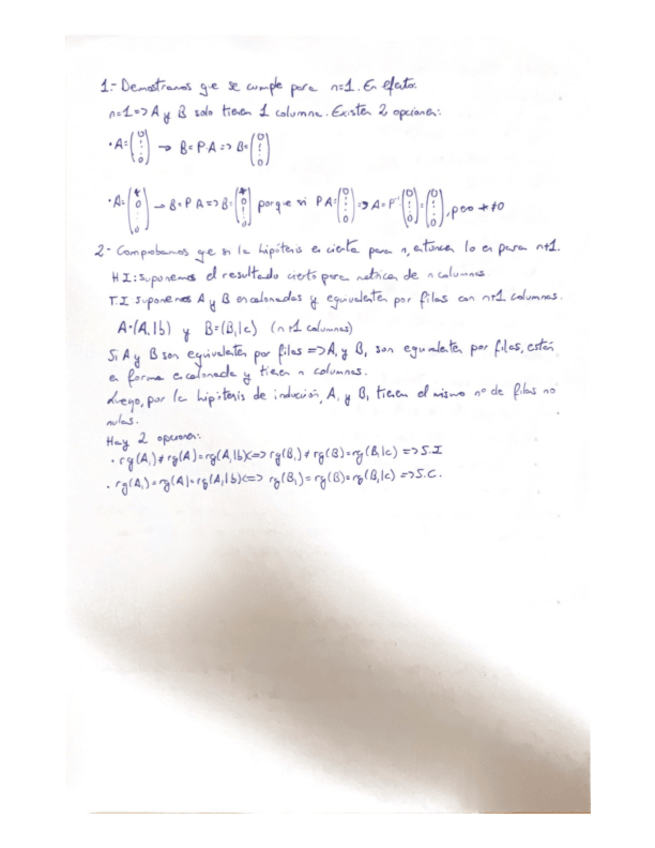 1.- Demostramos que se cumple para n=1. En efecto:
n=1 => A y B solo tienen 1 columna. Existen 2 opciones:
· A=(0 ⋮ 0) → B=P·A => B=(0 ⋮ 0)
· A=(* 0 ⋮ 0) → B=P·A => B=(* 0 ⋮ 0) porque si PA=(0 ⋮ 0) => A=P⁻¹(0 ⋮ 0)=(0 ⋮ 0), pero *≠0
2.- Comprobamos que si la hipótesis es cierta para n, entonces lo es para n+1.
H.I: Suponemos el resultado cierto para matrices de n columnas.
T.I Suponemos A y B escalonadas y equivalentes por filas con n+1 columnas.
A=(A₁|b) y B=(B₁|c) (n+1 columnas)
Si A y B son equivalentes por filas => A₁ y B₁ son equivalentes por filas, están
en forma escalonada y tienen n columnas.
Luego, por la hipótesis de inducción, A₁ y B₁ tienen el mismo nº de filas no
nulas.
Hay 2 opciones:
· rg(A₁)≠rg(A)=rg(A₁|b)<=> rg(B₁)≠rg(B)=rg(B₁|c) => S.I
· rg(A₁)=rg(A)=rg(A₁|b)<=> rg(B₁)=rg(B)=rg(B₁|c) => S.C.